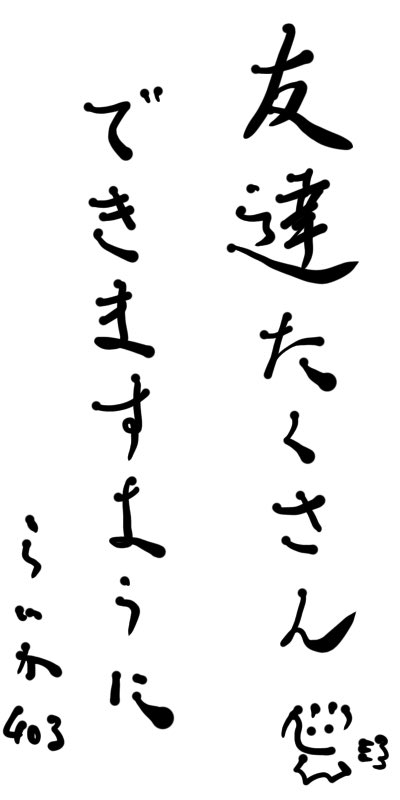 友達たくさん
できますように
らいか
403